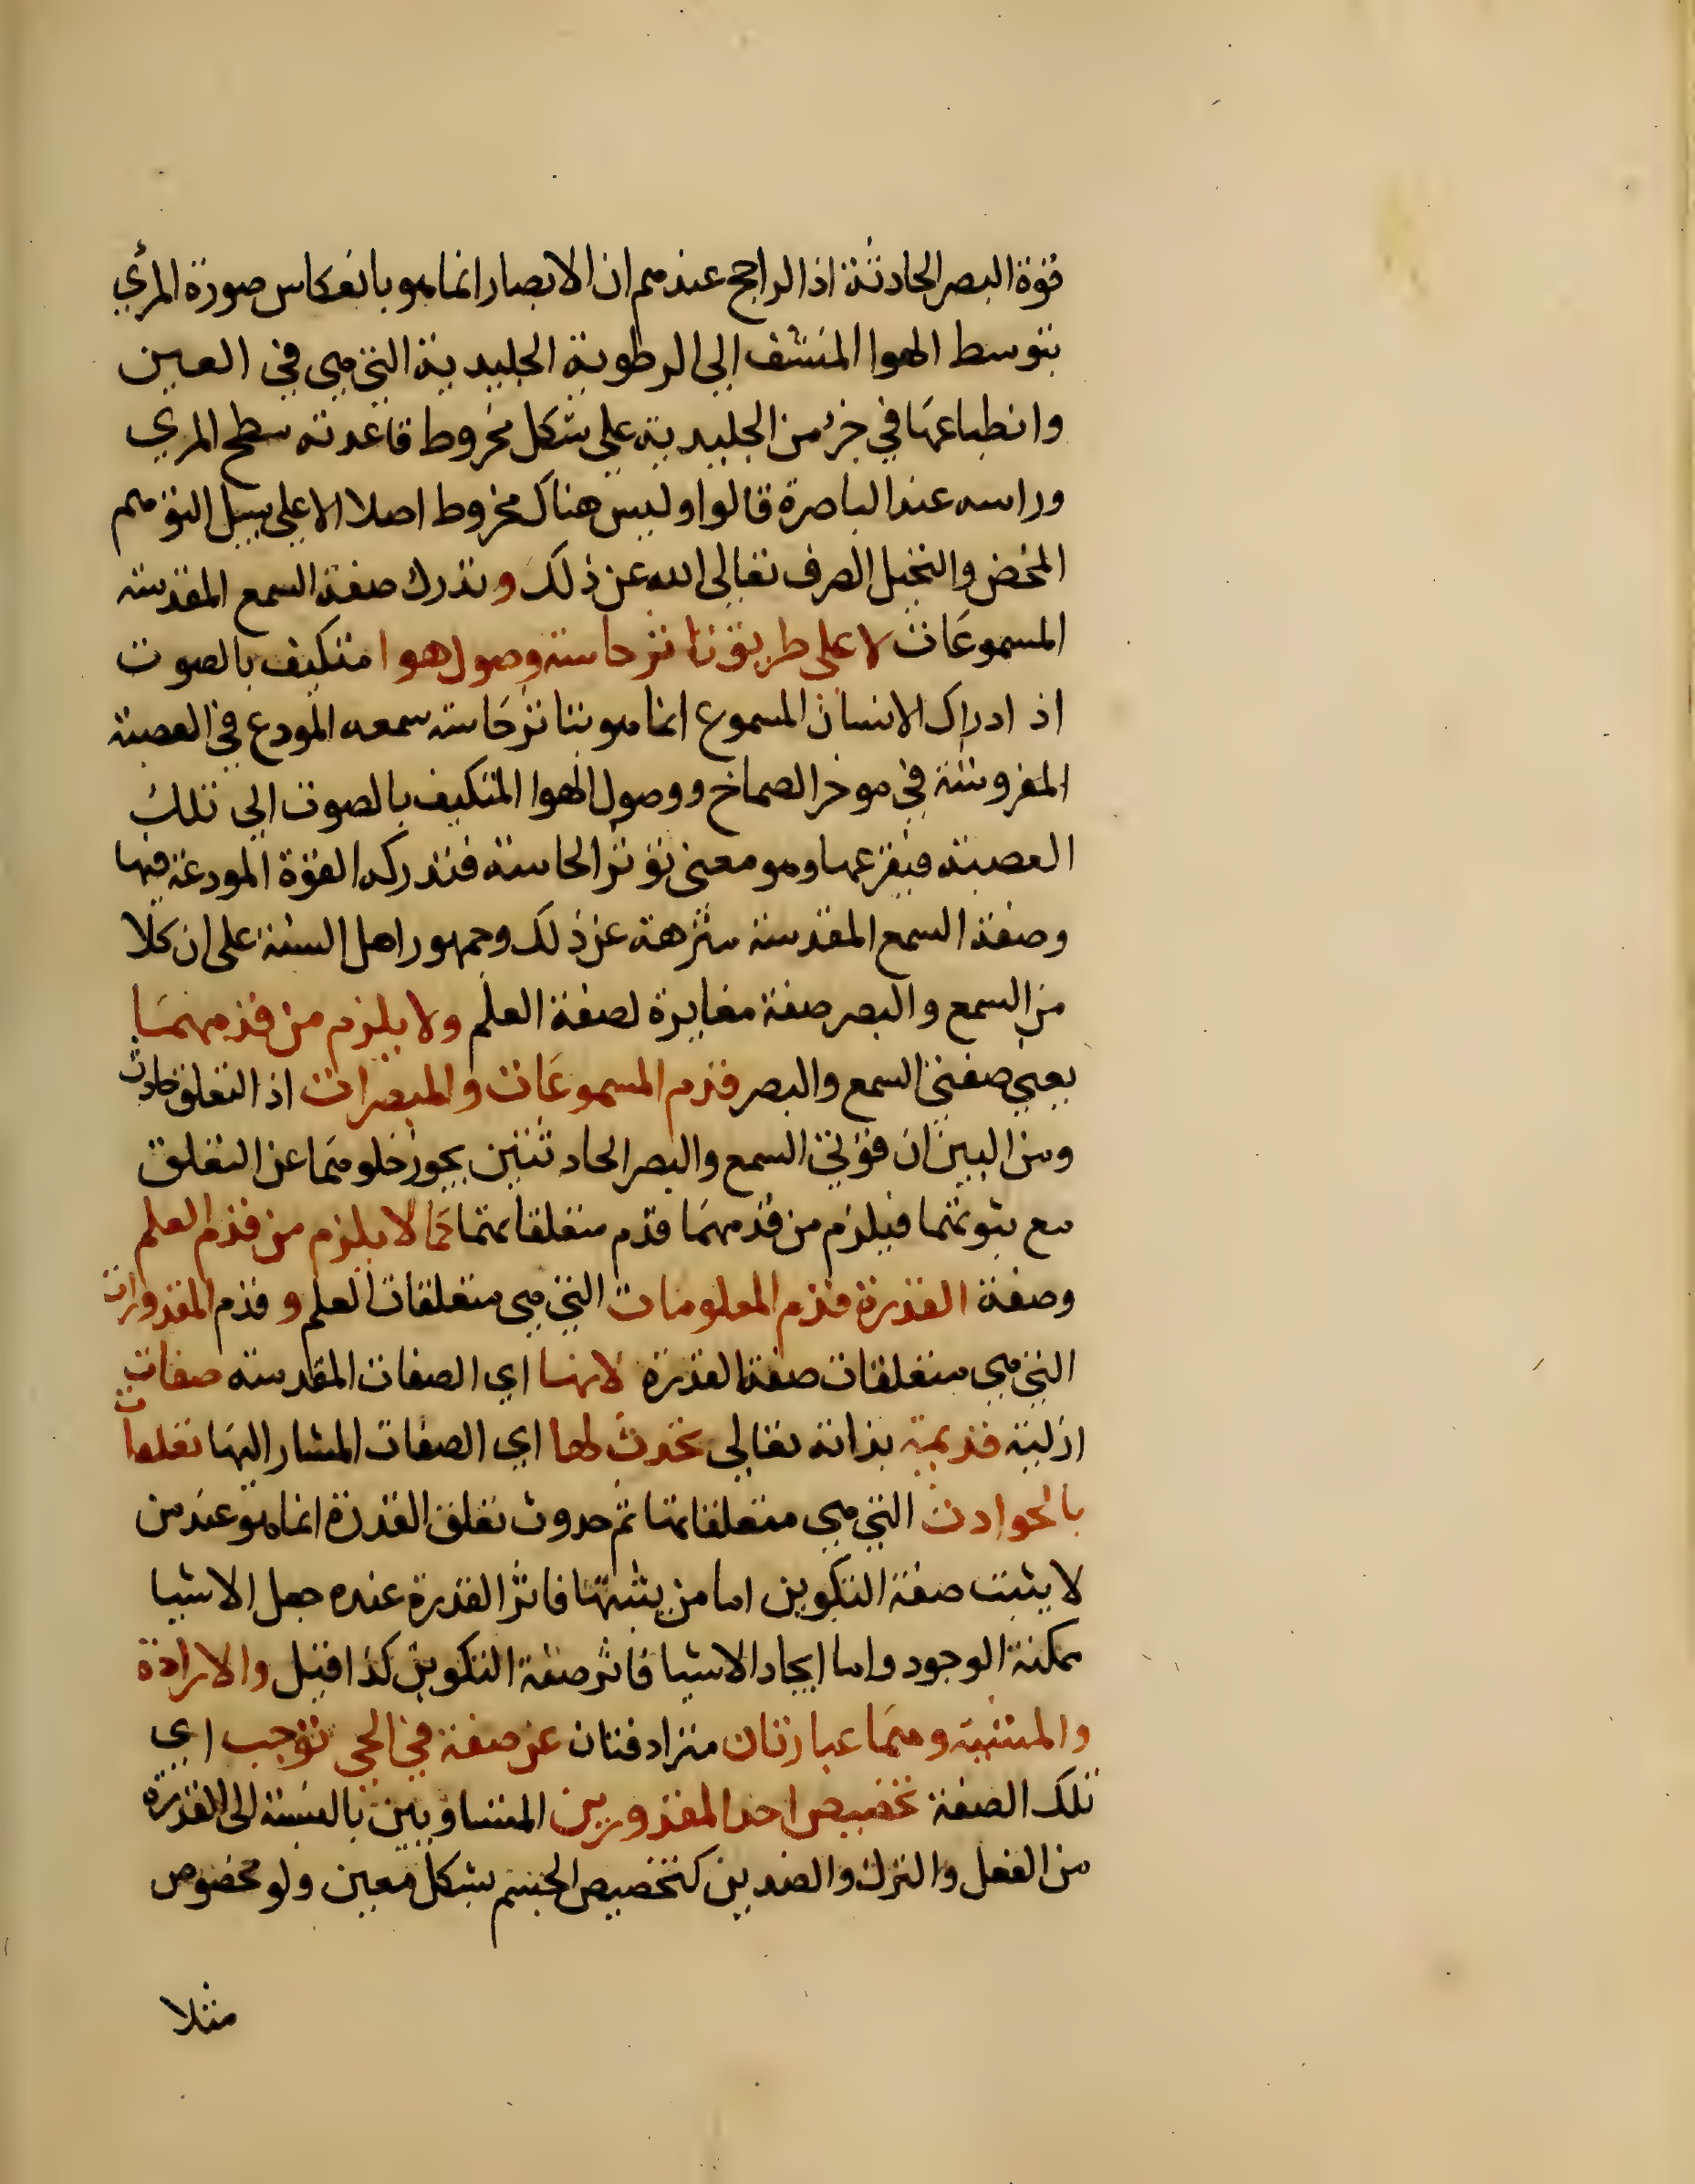 قوة البصر الحادثة اذ الراجح عندهم ان الابصار انما هو بانعكاس صورة المرئي
بتوسط الهوا المشف الى الرطوبة الجليدية التي هي في العين
وانطباعها في جزء من الجليدية على شكل مخروط قاعدته سطح المري
وراسه عند الباصرة قالوا وليس هناك مخروط اصلا الا على سبيل التوهم
المحض والتخيل الصرف تعالى الله عن ذلك وتدرك صفة السمع المقدسة
المسموعات لا على طريق تاثر حاسة وصول هوا متكيف بالصوت
اذ ادراك الانسان المسموع انما هو بتاثر حاسة سمعه المودع في العصبة
المفروشة في موخر الصماخ ووصول الهوا المتكيف بالصوت الى تلك
العصبة فيقرعها وهو معنى تؤثر الحاسة فتدركه القوة المودعة فيها
وصفة السمع المقدسة منزهة عن ذلك وجمهور اهل السنة على ان كلا
من السمع والبصر صفة مغايرة لصفة العلم ولا يلزم من قدمهما
يعني صفتي السمع والبصر قدم المسموعات والمبصرات اذ التعلق حادث
ومن البين ان قوتي السمع والبصر الحادثتين يجوز خلوهما عن التعلق
مع ثبوتهما فيلزم من قدمهما قدم متعلقاتهما كما لا يلزم من قدم العلم
وصفة القدرة قدم المعلومات التي هي متعلقات العلم وقدم المقدورات
التي هي متعلقات صفة القدرة لانها اي الصفات المقدسة صفات
ازلية قديمة بذاته تعالى يحدث لها اي الصفات المشار اليها تعلقات
بالحوادث التي هي متعلقاتها ثم حدوث تعلق القدرة انما هو عند من
لا يثبت صفة التكوين اما من يثبتها فاثر القدرة عنده جعل الاشيا
ممكنة الوجود واما ايجاد الاشيا فاثر صفة التكوين كذا قيل والارادة
والمشية وهما عبارتان مترادفتان عن صفة في الحي توجب اي
تلك الصفة تخصيص احد المقدورين المتساويين بالنسبة الى القدرة
من الفعل والترك والضدين كتخصيص الجسم بشكل معين ولو مخصوص
مثلا